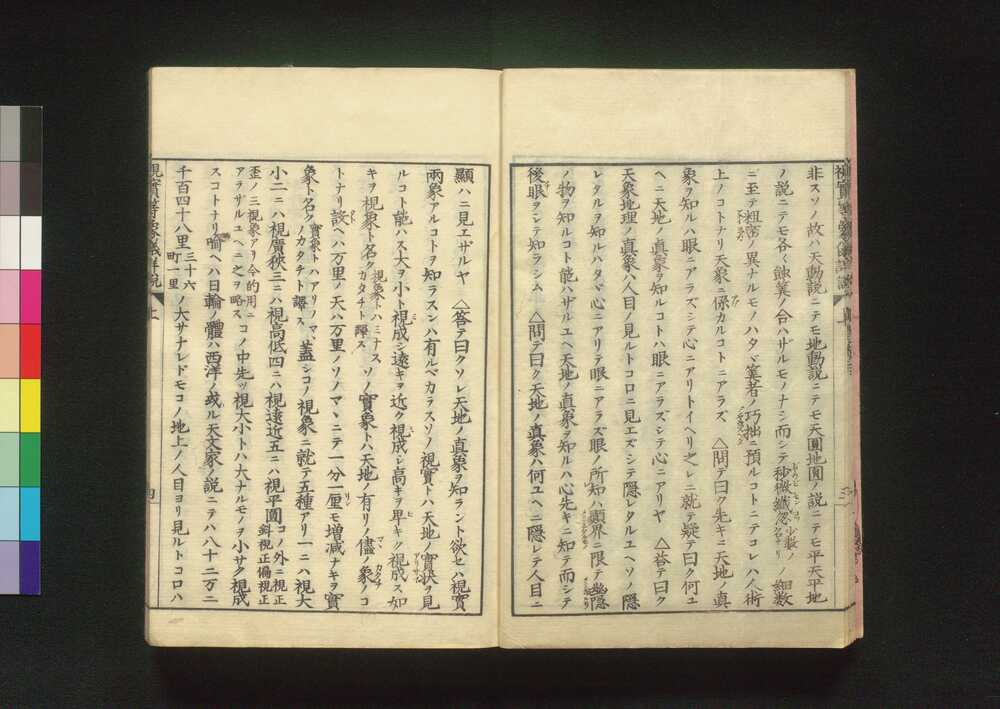 非スソノ故ハ天動說ニテモ地動說ニテモ天圓地圓ノ說ニテモ平天平地
ノ說ニテモ各〻蝕算ノ合ハザルモノナシ而シテ秒微纖忽少數ノ名ナリノ細數
ニ至テ粗密ノ異ナルモノハタヾ筭者ノ巧拙ニ預ルコトニテコレハ人術
上ノコトナリ天象ニ係カルコトニアラズ △問テ曰ク先キニ天地ノ眞
象ヲ知ルハ眼ニアラズシテ心ニアリトイヘリ之レニ就テ疑テ曰ク何ユ
ヘニ天地ノ眞象ヲ知ルコトハ眼ニアラズシテ心ニアリヤ △答テ曰ク
天象地理ノ眞象ハ人目ノ見ルトコロニ見エズシテ隱レタルユヘソノ隱
レタルヲ知ルハタヾ心ニアリテ眼ニアラズ眼ノ所知ハ顯界ニ限テ幽隱
ノ物ヲ知ルコト能ハザルユヘ天地ノ眞象ヲ知ルハ心先キニ知テ而シテ
後眼ヲシテ知ラシム △問テ曰ク天地ノ眞象ハ何ユヘニ隱レテ人目ニ
顯ハニ見エザルヤ △答テ曰クソレ天地ノ眞象ヲ知ラント欲セハ視實
兩象アルコトヲ知ラスンハ有ルベカラスソノ視實トハ天地ノ實狀ヲ見
ルコト能ハス大ヲ小ト視成シ遠キヲ近ク視成シ高キヲ卑キク視成ス如
キヲ視象ト名ク視象トハミナスカタチト譯スソノ實象トハ天地ノ有リノ儘ノ象ノコ
トナリ設ヘハ万里ノ天ハ万里ノソノマヽニテ一分一厘モ增減ナキヲ實
象ト名ク實象トハアリノマヽノカタチト譯ス蓋シコノ視象ニ就テ五種アリ一ニハ視大
小二ニハ視廣狹三ニハ視高低四ニハ視遠近五ニハ視平圓コノ外ニ視正斜視正偏視正
歪ノ三視象アリ今的用ニアラザルユヘニ之ヲ略スコノ中先ッ視大小トハ大ナルモノヲ小サク視成
スコトナリ喻ヘハ日輪ノ體ハ西洋ノ或ル天文家ノ說ニテハ八十二万二
千百四十八里三十六町一里ノ大サナレドモコノ地上ノ人目ヨリ見ルトコロハ
視實等象儀詳說
上
四